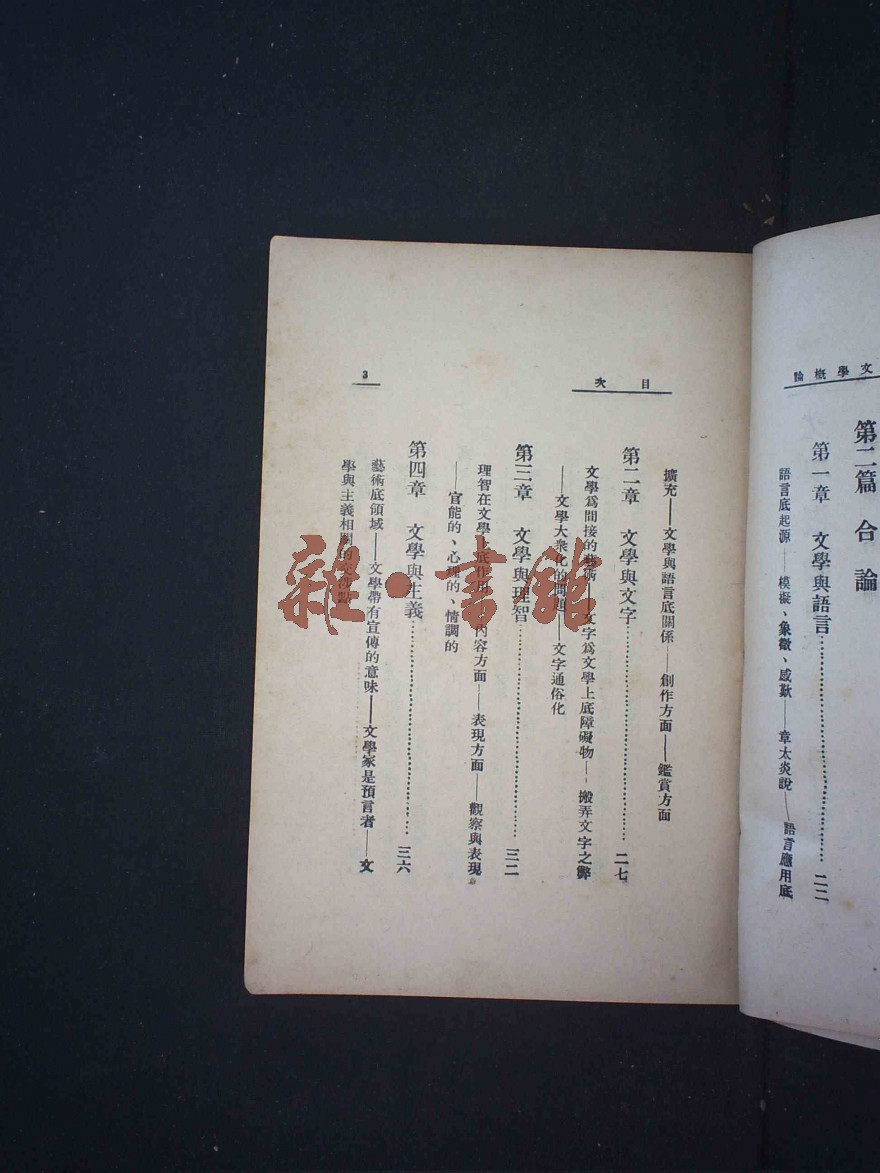 論概學文
第二篇 合論
第一章 文學與語言……二二
語言底起源——模擬、象徵、感歎——章太炎說——語言應用底
目次
擴充——文學與語言底關係——創作方面——鑑賞方面
第二章 文學與文字……二七
文學爲間接的藝術——文字爲文學上底障礙物——搬弄文字之弊
——文學大衆化的問題——文字通俗化
第三章 文學與理智……三二
理智在文學上底作用——內容方面——表現方面——觀察與表現
——官能的、心理的、情調的
第四章 文學與主義……三六
藝術底領域——文學帶有宣傳的意味——文學家是預言者——文
學與主義相關的交涉點
3
雜·書館